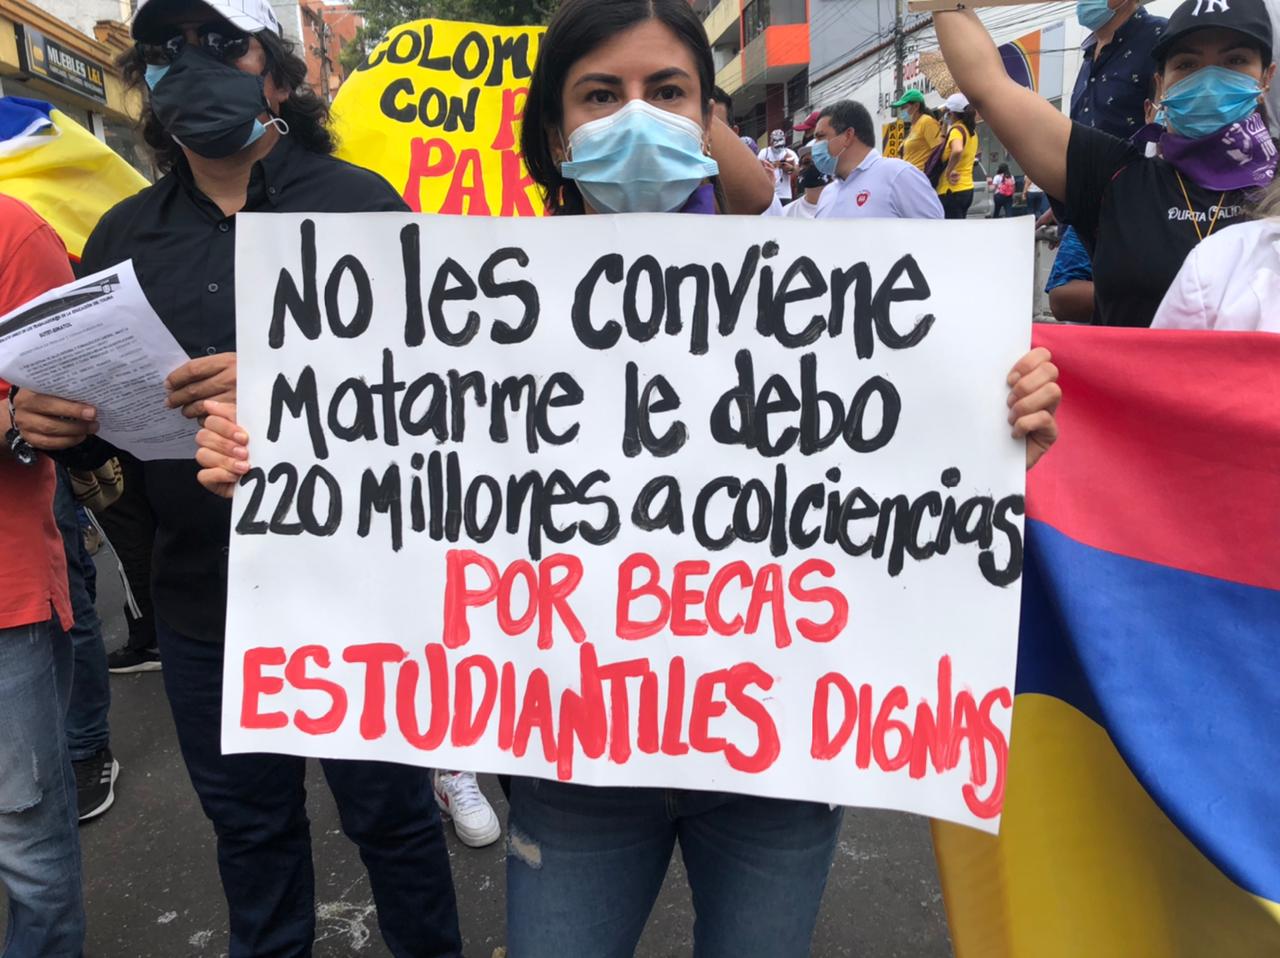 MUEBLES L&L
COLOM
CON P
PAR
NY
NO les conviene
Matarme le debo
220 Millones a colciencias
POR BECAS
ESTUDIANTILES DIGNAS